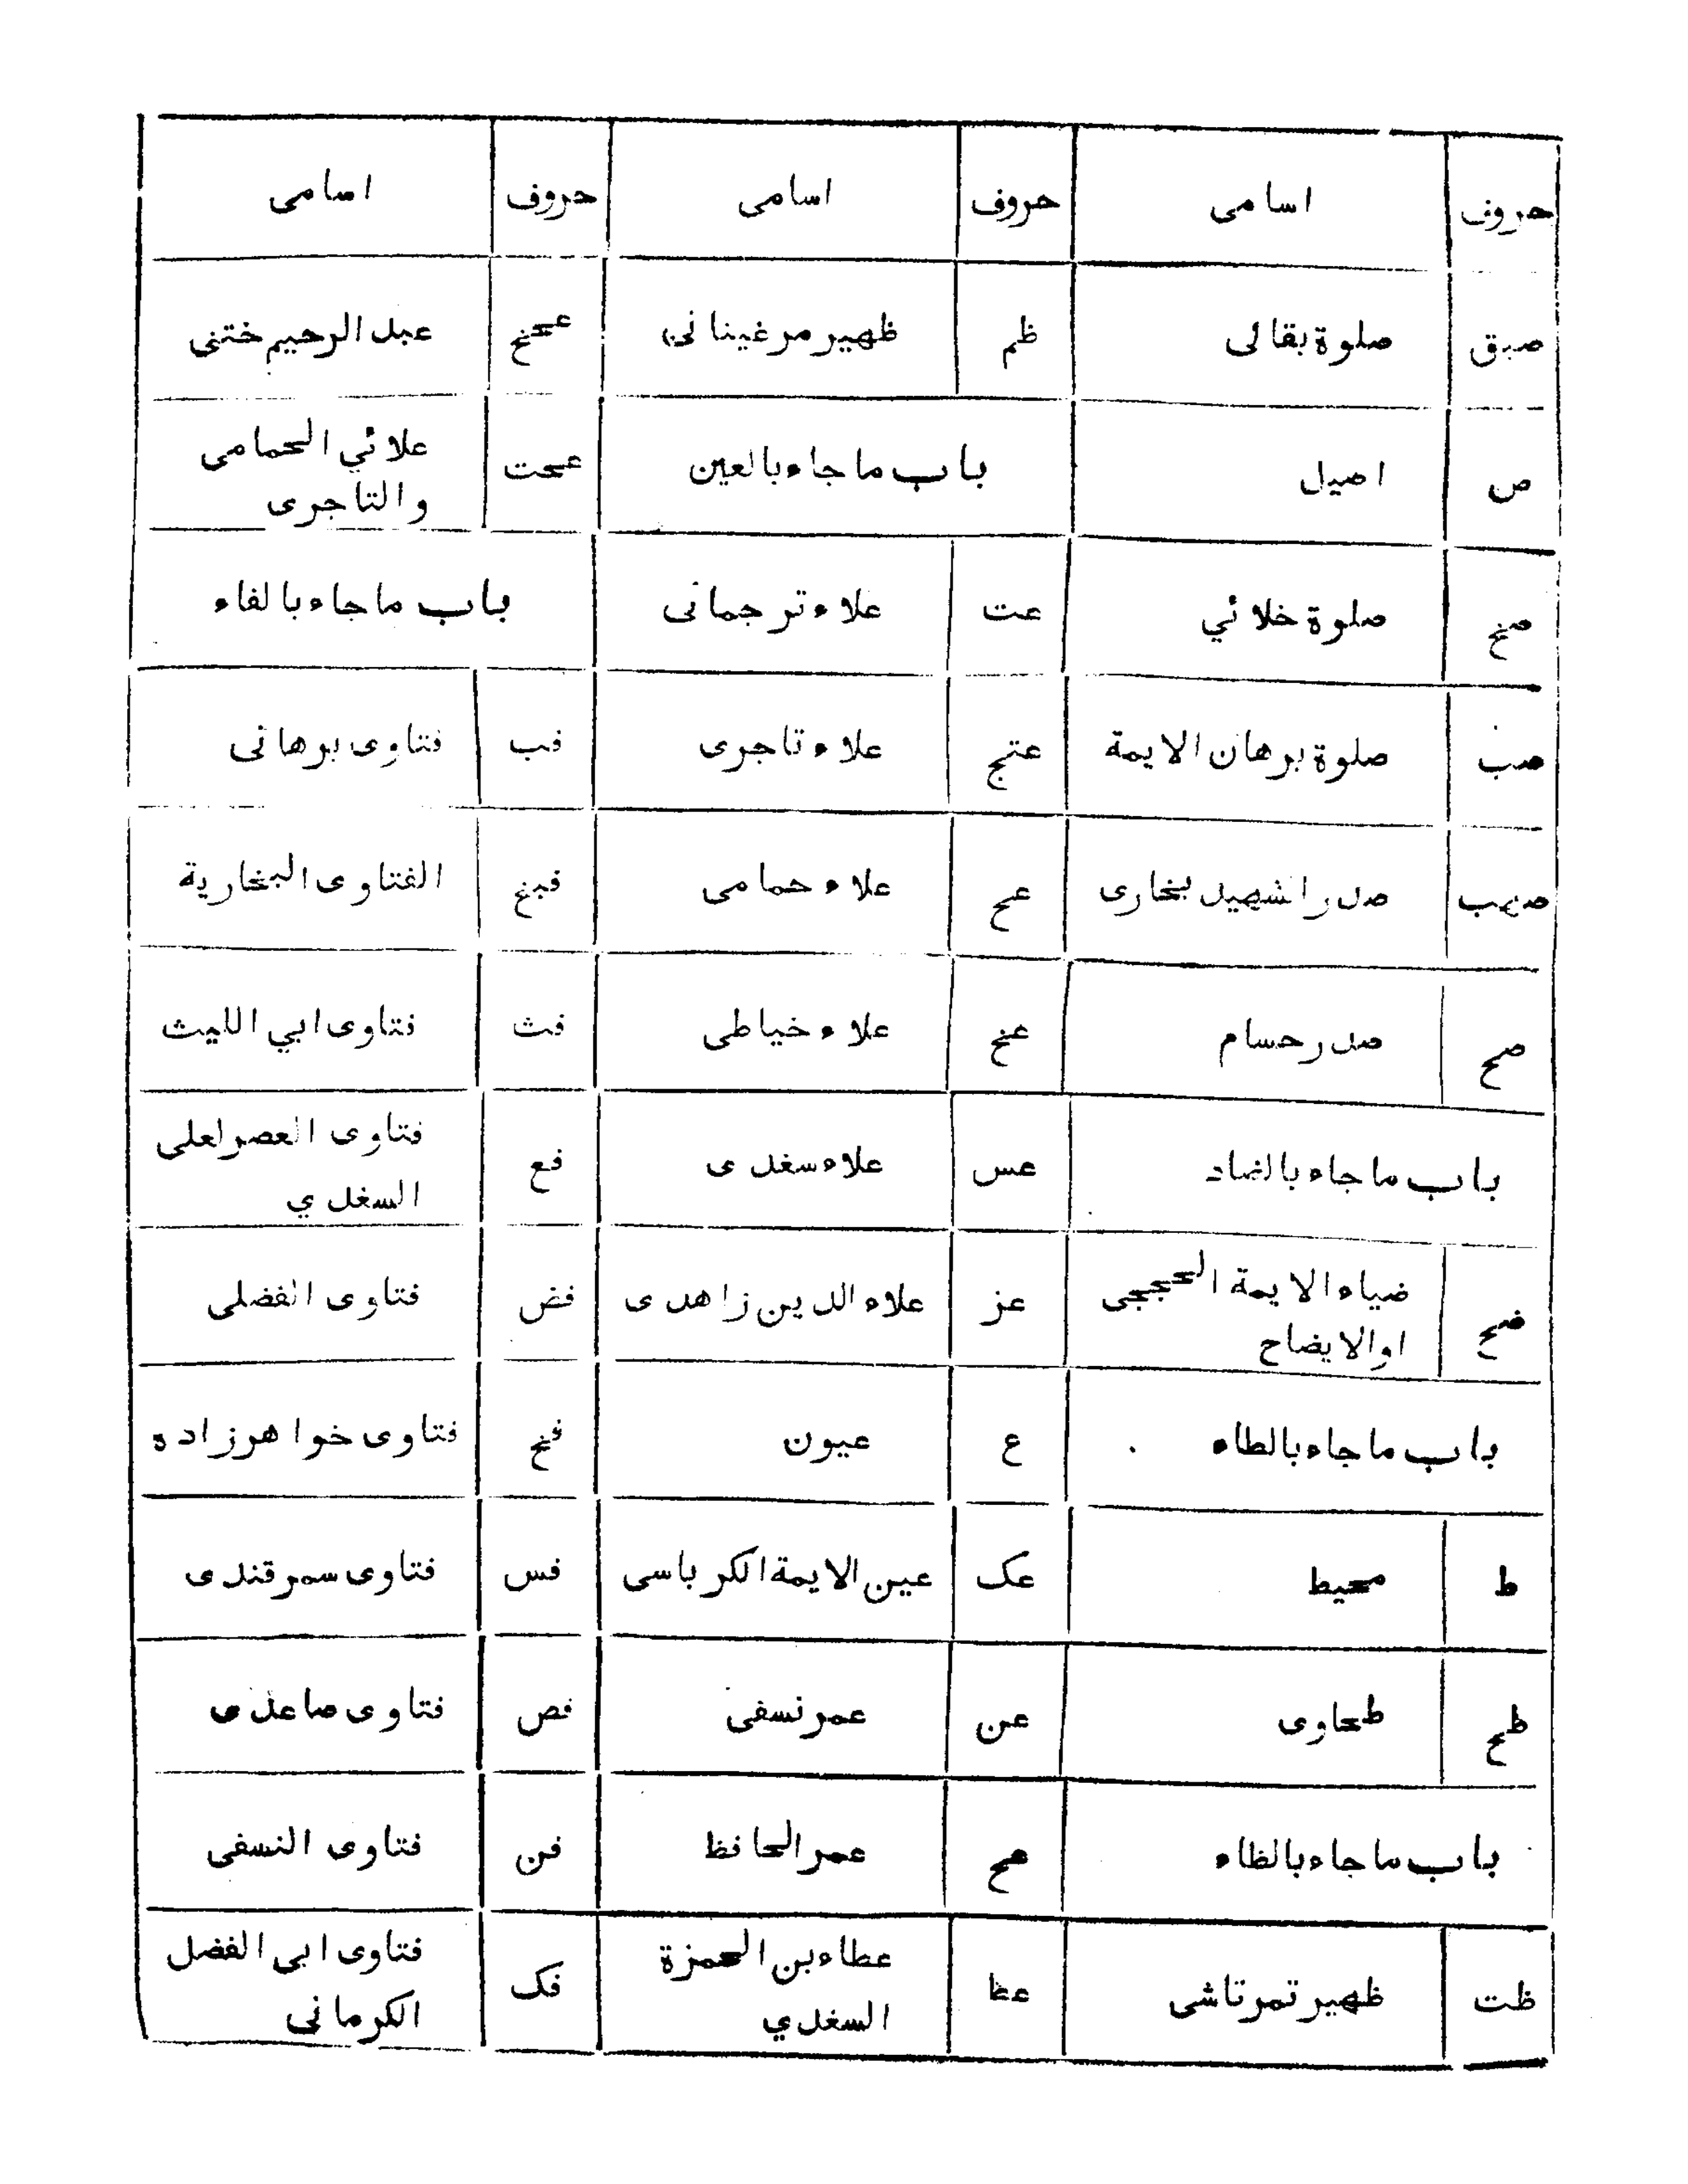 حروف اسامی حروف اسامی حروف اسامی
صبق صلوة بقالی ظم ظهیر مرغینانی عخ عبد الرحیم ختنی
ص اصیل باب ما جاء بالعین عحت علائي الحمامی
والتاجری
صخ صلوة خلائي عت علاء ترجمانی باب ما جاء بالفاء
صب صلوة برهان الایمة عتج علاء تاجری فب فتاوی برهانی
صهب صدر الشهید بخاری عح علاء حمامی فبخ الفتاوی البخاریة
صح صدر حسام عخ علاء خیاطی فث فتاوی ابي اللیث
باب ما جاء بالضاد عس علاء سغدی فع فتاوی العصر لعلی
السغدي
ضح ضیاء الایمة الحججی عز علاء الدین زاهدی فض فتاوی الفضلی
او الایضاح
باب ما جاء بالطاء ع عیون فخ فتاوی خواهرزاده
ط محیط عک عین الایمة الکرباسی فس فتاوی سمرقندی
طح طحاوی عن عمر نسفی فص فتاوی صاعدی
باب ما جاء بالظاء عمر الحافظ فن فتاوی النسفی
ظت ظهیر تمرتاشی عطا عطاء بن الحمزة فک فتاوی ابی الفضل
السغدي الکرمانی